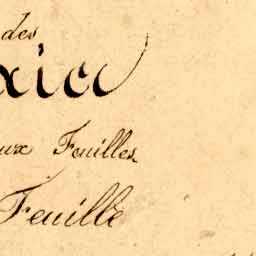 des
xico
ux Feuilles
Feuille